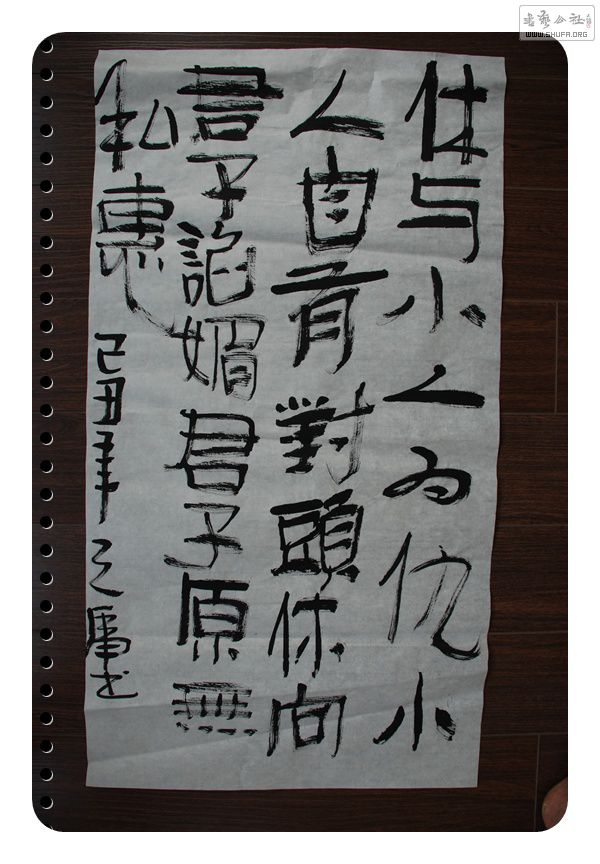 休与小人为仇小
人自有對頭休向
君子諂媚君子原無
私惠
己丑年
書藝公社
WWW.SHUFA.ORG